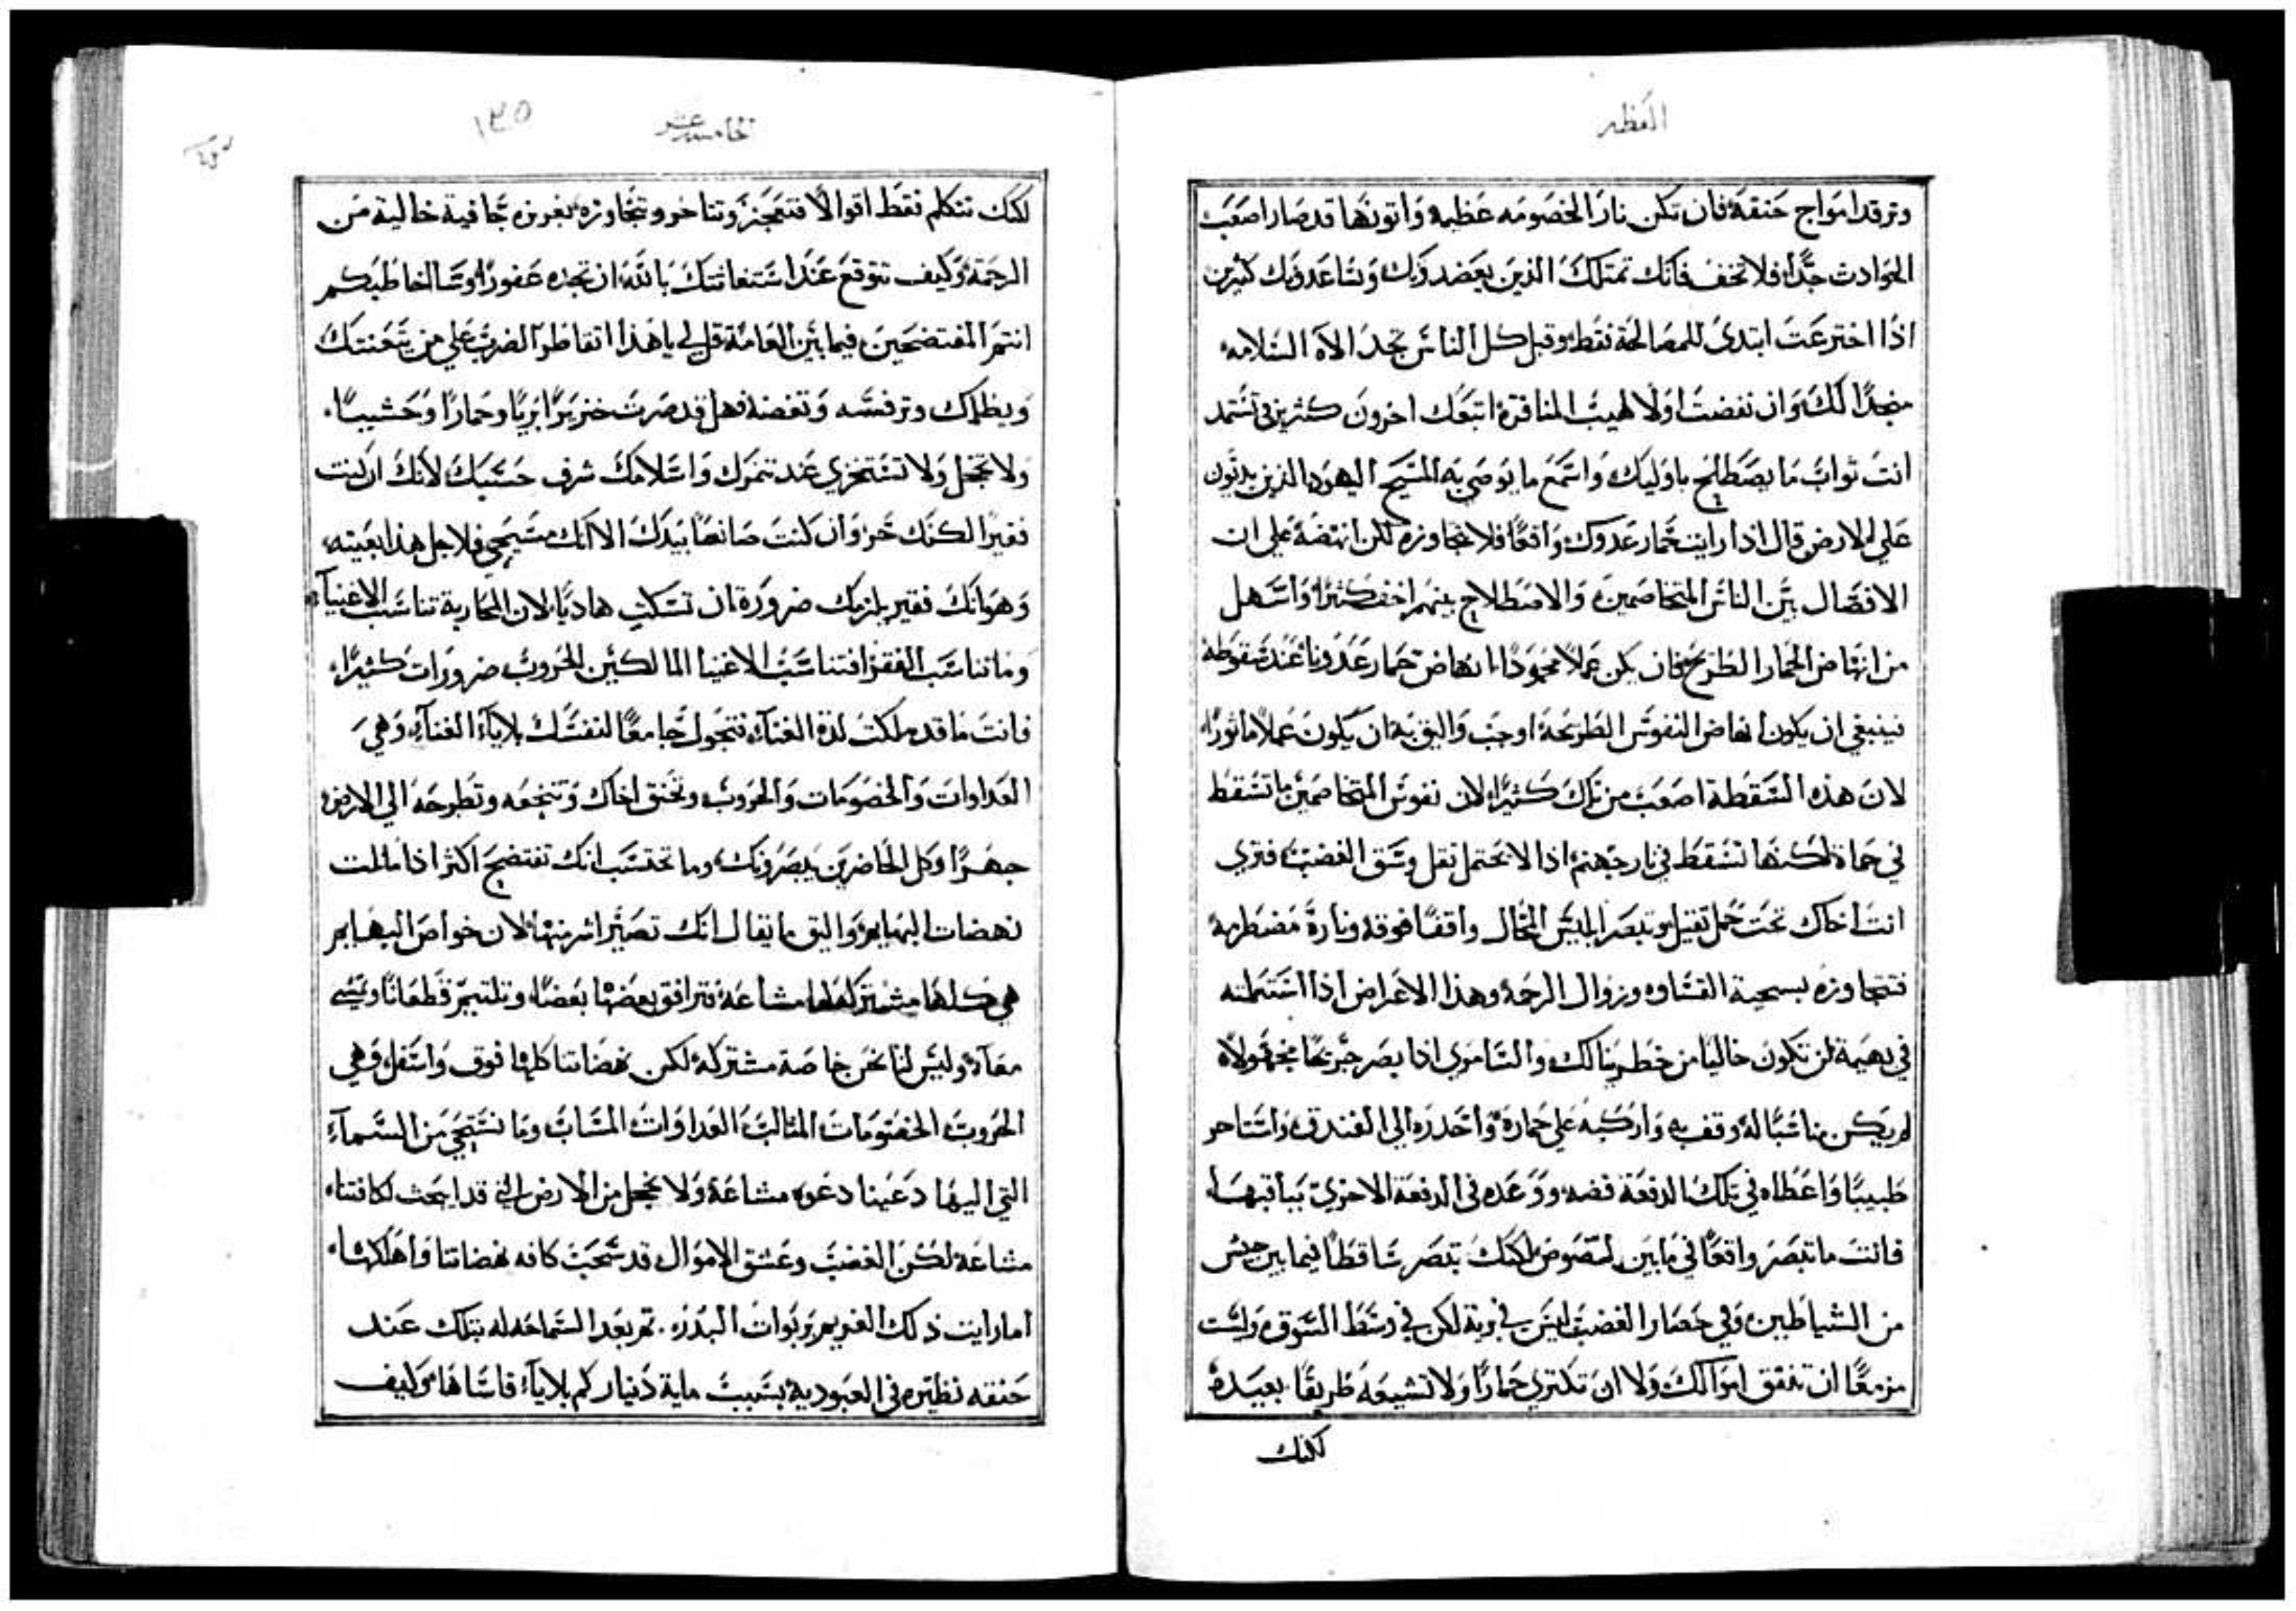 العظه
وترقد امواج حنقه فان تكن نار الخصومه عظيمه واتونها قد صار اصعب
الحوادث جدًا فلا تخف فانك تمتلك الذين يعضدونك ويساعدونك كثيرين
اذا اخترعت ابتدئ للمصالحة فقط وقبل كل الناس تجد الاه السلامه
منجدًا لك وان نفضت اولا لهيب المنافرة اتبعك اخرون كثيرين تستمد
انت ثواب ما يصطلح باوليك واسمع ما يوصي به المسيح اليهود الذين يدبون
على الارض قال اذا رايت حمار عدوك واقعًا فلا تجاوزه لكن انهضه على ان
الافصال بين الناس المتخاصمين والاصطلاح بينهم اخف كثيرًا واسهل
من انهاض الحمار الطريح فان يكن عملاً محمودًا انهاض حمار عدونا عند سقوطه
فينبغي ان يكون انهاض النفوس الطريحة اوجب واليق به ان يكون عملاً ماثورًا
لان هذه السقطة اصعب من تلك كثيرًا لان نفوس المتخاصمين ما تسقط
في حماة لكنها تسقط في نار جهنم اذا لا تحتمل ثقل وسق الغضب فترى
انت اخاك تحت حمل ثقيل وتبصر ابليس المحال واقفًا فوقه وناره مضطرمة
فتتجاوزه بسجية القساوه وزوال الرحمه وهذا الاعراض اذا استعملته
في بهيمة لن تكون خاليا من خطر ينالك والسامري اذا بصر جريحًا مجهولاً
لم يكن مناسبًا له وقف به واركبه على حماره واحدره الي الفندق واستاجر
طبيبًا واعطاه في تلك الدفعة فضه ووعده في الدفعة الاخرى بباقيها
فانت ما تبصر واقعًا في ما بين لصوص لكنك تبصر ساقطًا فيما بين جيش
من الشياطين وفي حصار الغضب ليس في برية لكن في وسط السوق ولست
مزمعًا ان تنفق اموالك ولا ان تكتري حمارًا ولا تشيعه طريقًا بعيدة
لكنك
الخامسه عشر
١٣٥
لكنك تتكلم فقط اقوالاً فتعجز وتتاخر وتجاوزه بغريزه جافية خالية من
الرحمة وكيف تتوقع عند استغاثتك بالله ان تجده غفورًا وسالخاطبكم
انتم المفتضحين فيما بين العامة قل لي يا هذا اتقاطر الضرب على من يتعنتك
ويظلمك وترفسه وتعضه فهل قد صرت خنزيرًا بريًا وحمارًا وحشيًا
ولا تخجل ولا تستخزي عند تنمرك واسلامك شرف حسبك لأنك ان كنت
فقيرًا لكنك حر وان كنت صانعًا بيدك الا انك مسيحي فلاجل هذا بعينه
وهو انك فقير يلزمك ضرورة ان تسكت هاديًا لان المحاربة تناسب الاغنيآ
وما تناسب الفقرا فتناسب الاغنيا المالكين الحروب ضرورات كثيرًا
فانت ما قد ملكت لذة الغنآء فتجول جامعًا لنفسك بلايآ الغنآء وهي
العداوات والخصومات والحروب وتخنق اخاك وتنجعه وتطرحه الي الارض
جهرًا وكل الحاضرين يبصرونك وما تحتسب انك تفتضح اكثر اذا ماثلت
نهضات البهايم واليق ما يقال انك تصير اشر منها لان خواص البهايم
هي كلها مشتركه لها مشاعة فترافق بعضها بعضًا وتلتيم قطعانًا وتمشي
معآ وليس لنا نحن خاصة مشتركة لكن نهضاتنا كلها فوق واسفل وهي
الحروب الخصومات المثالب العداوات المساب وما نستحي من السمآء
التي اليها دعينا دعوة مشاعة ولا نخجل من الارض التي قد ابحث لكافتنا
مشاعة لكن الغضب وعشق الاموال قد سحبت كافه نهضاتنا واهلكها
اما رايت ذلك الغريم بربوات البدره. ثم بعد السماحه له بتلك عند
حنقه نظيره في العبودية بسبب ماية دينار كم بلايآ قاساها وكيف